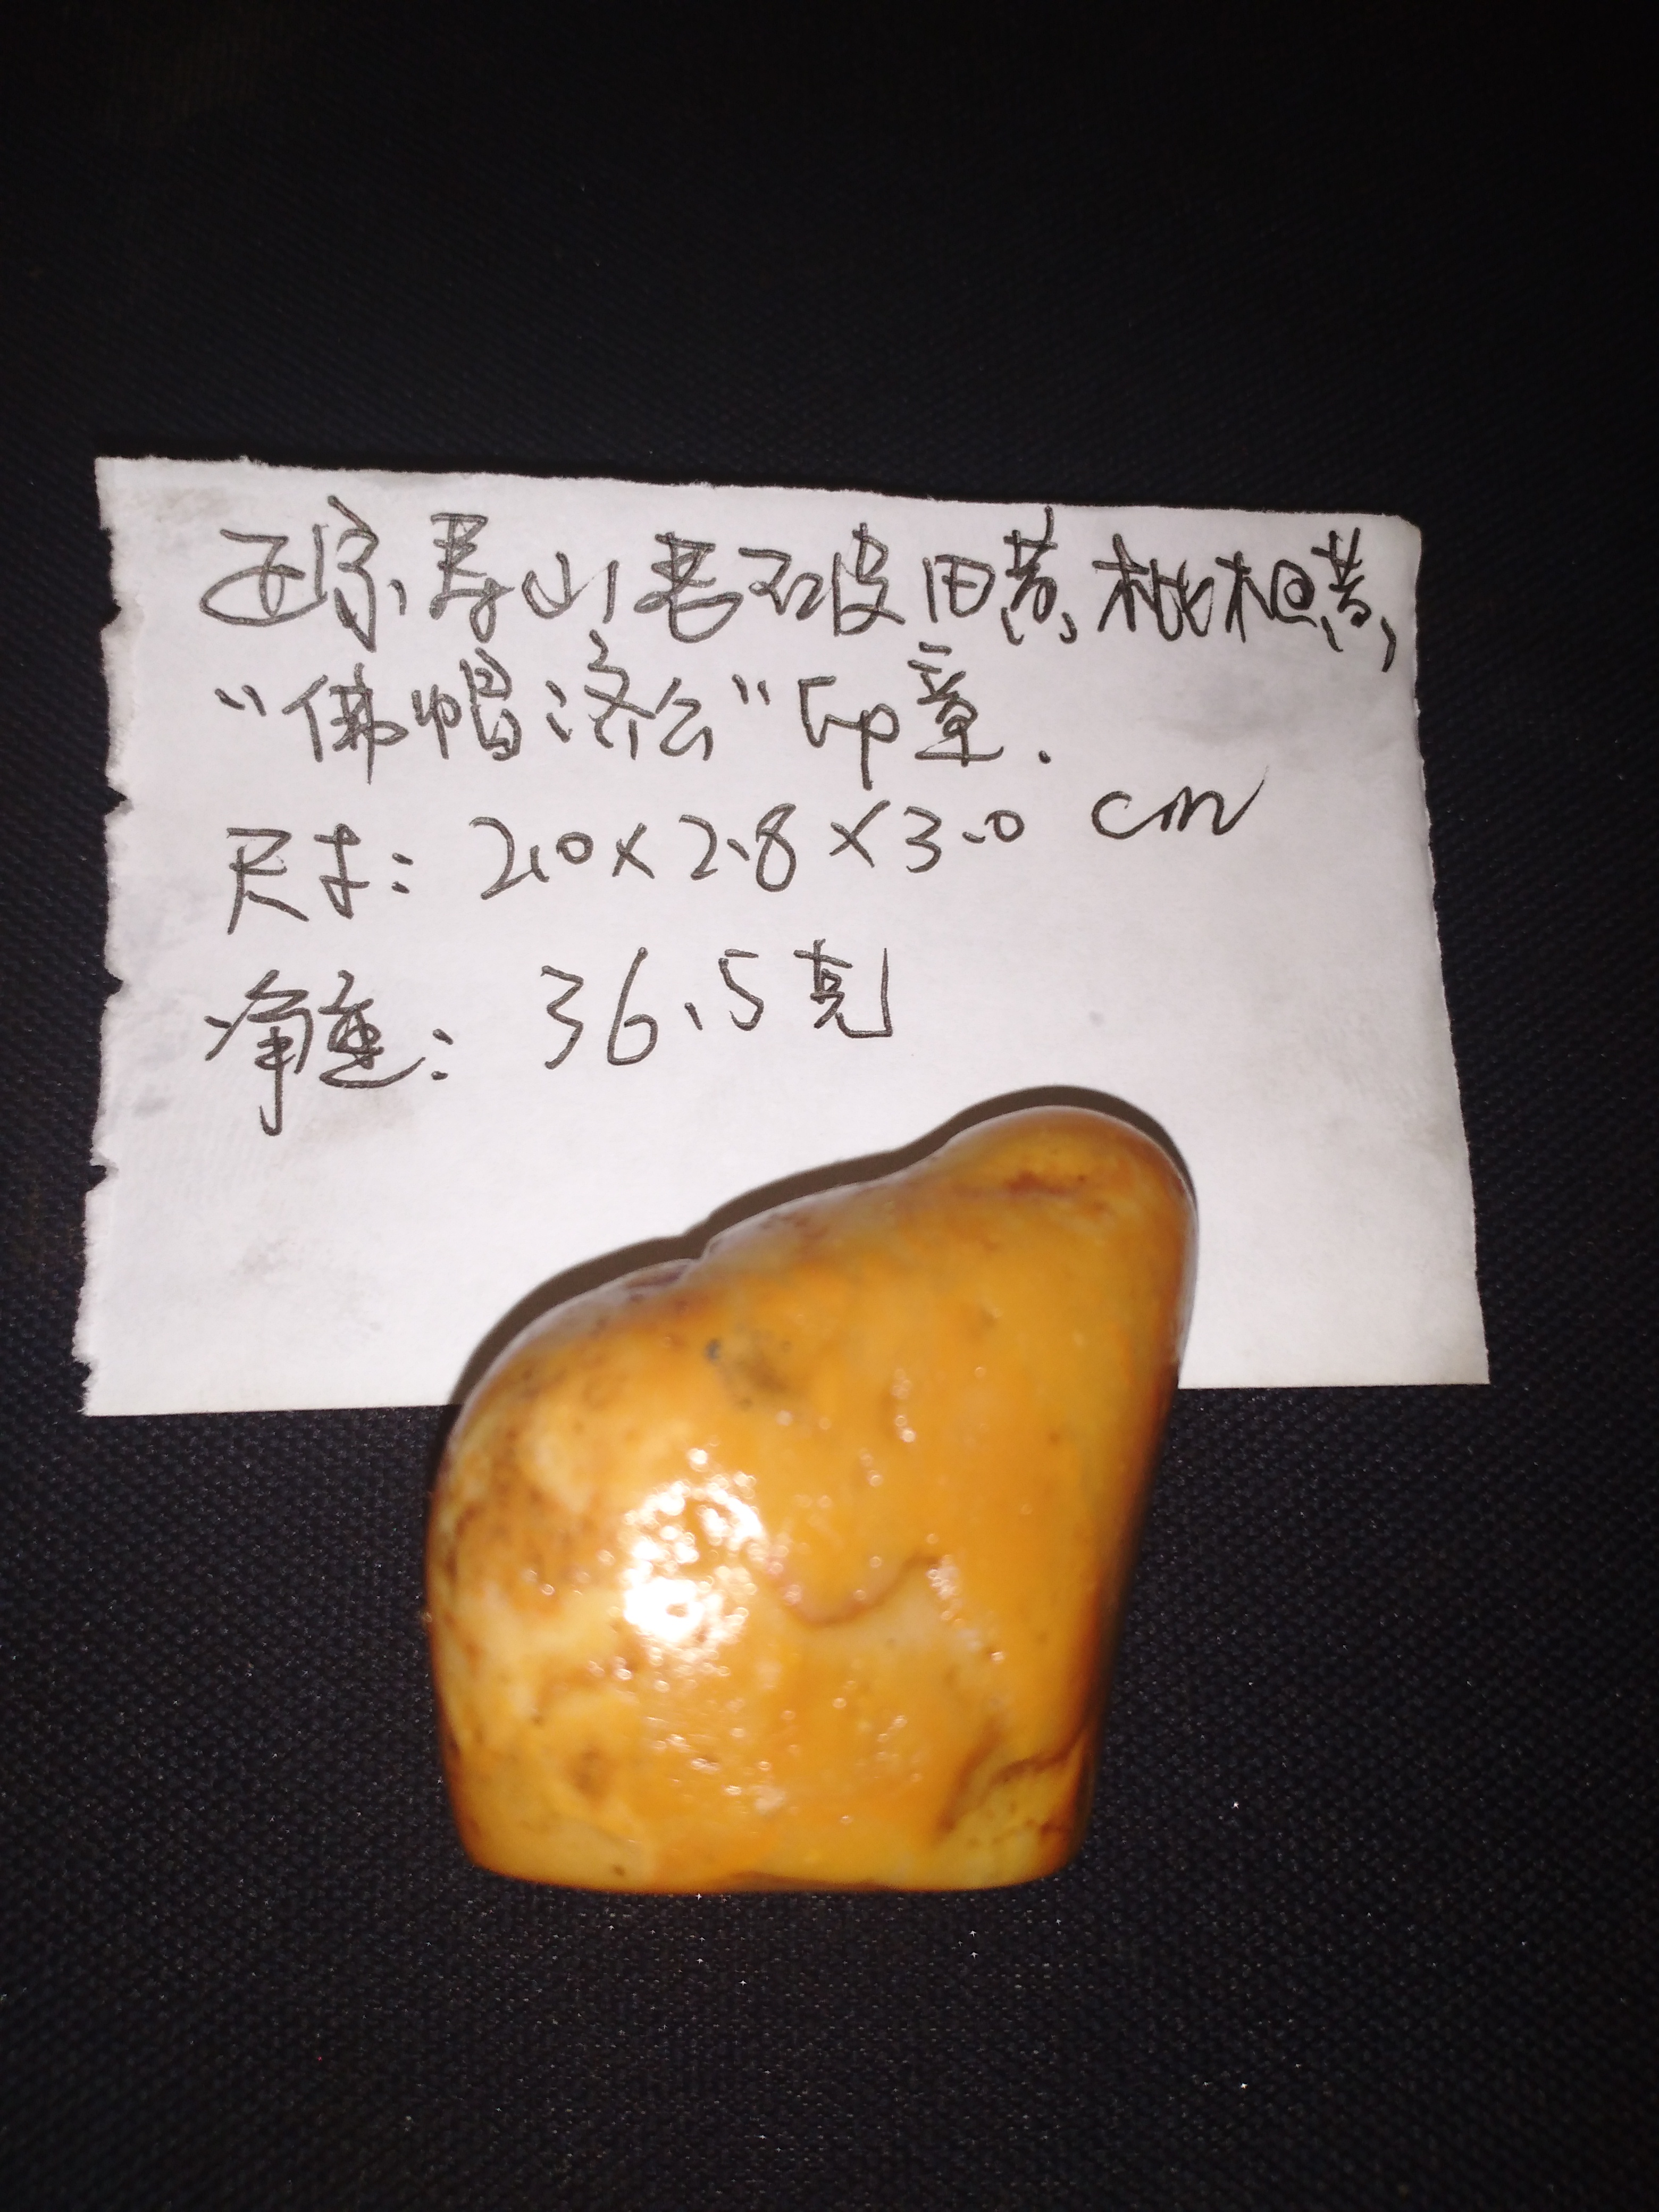 正宗寿山老石皮田黄,枇杷黄,
“佛帽济公”印章.
尺寸: 2.0×2.8×3.0 cm
净重: 36.5克